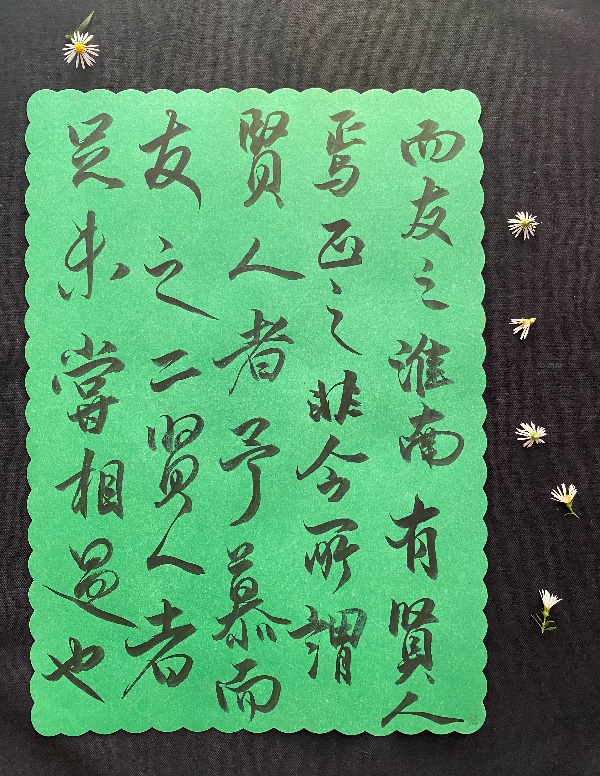 而友之淮南有賢人
焉正之非今所謂
賢人者予慕而
友之二賢人者
足未嘗相過也